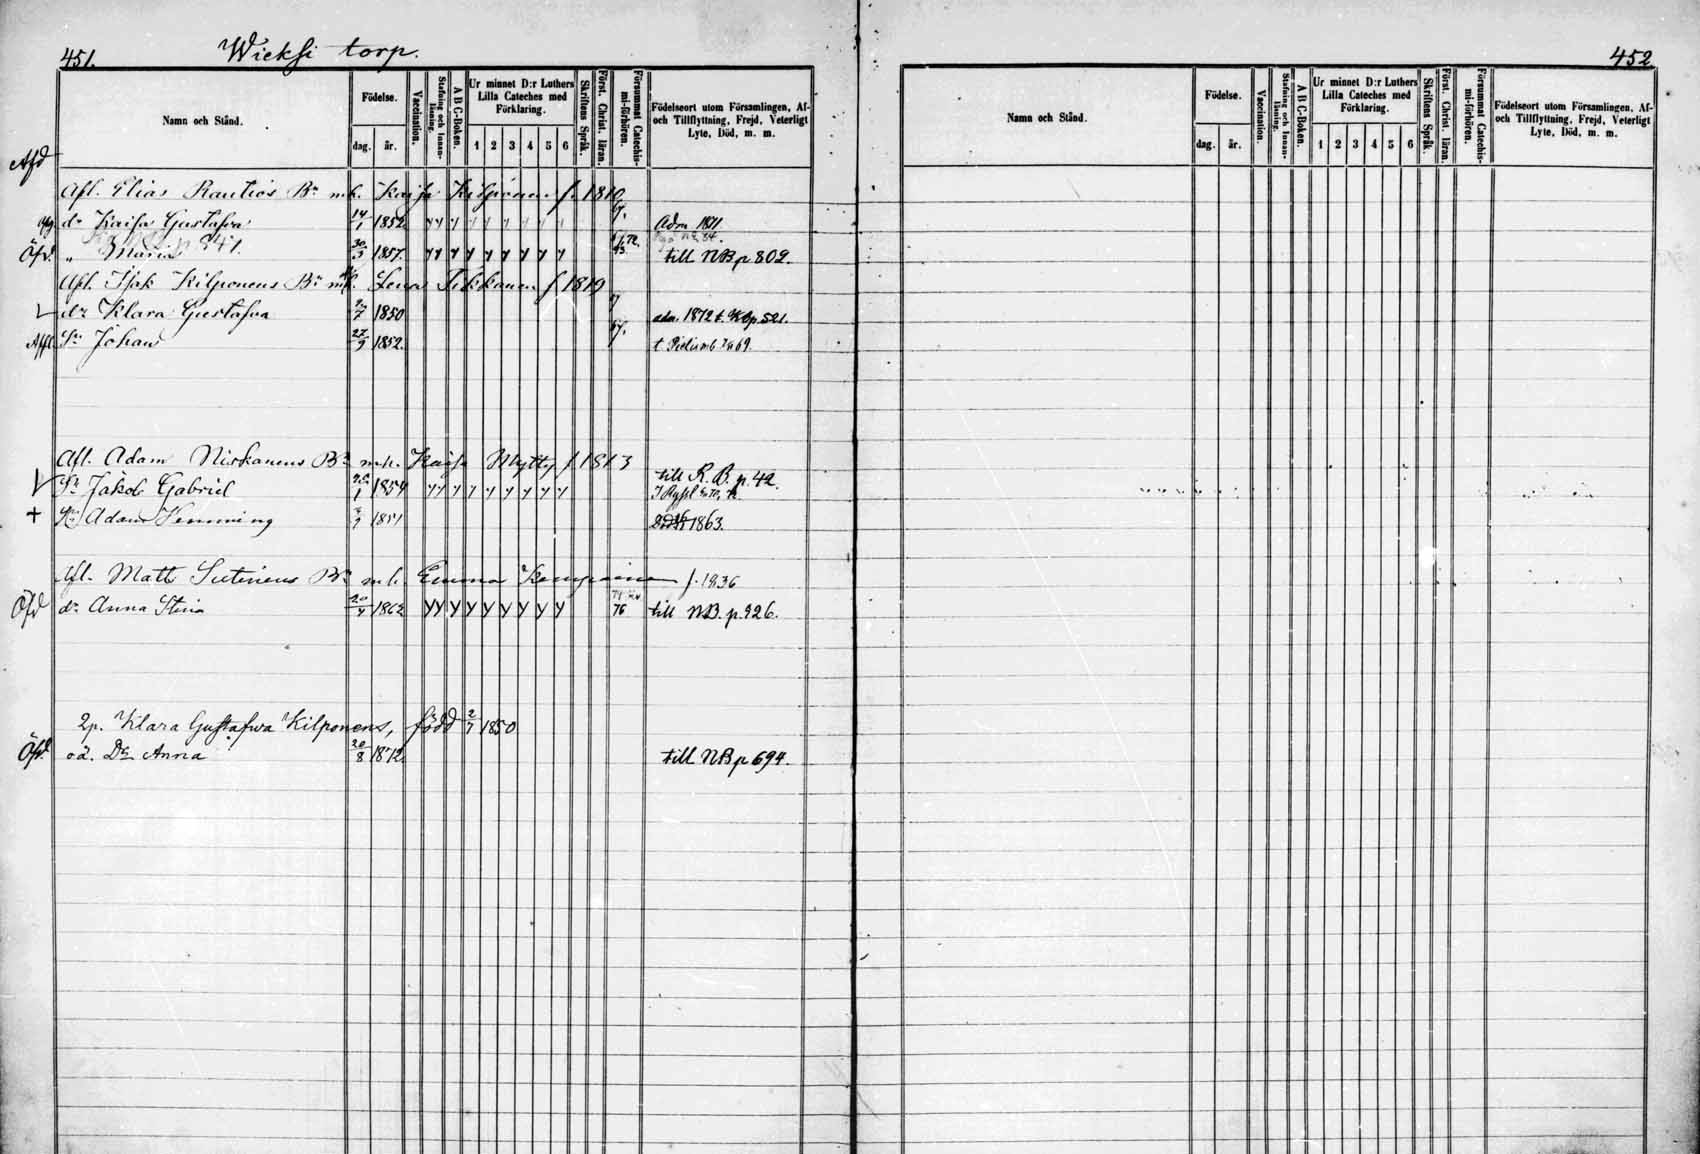 451. Wieksi torp.
Namn och Stånd.
Födelse.
dag. år.
Vaccination.
Stafning och Innan-läsning.
A B C-Boken.
Ur minnet D:r Luthers Lilla Cateches med Förklaring.
1 2 3 4 5 6
Skriftens Språk.
Först. Christ. läran.
Försummat Catechis-mi-förhören.
Födelseort utom Församlingen, Af- och Tillflyttning, Frejd, Veterligt Lyte, Död, m. m.
Afd
Afl. Elias Rautios Br m.h. Kaisa Kilponen f. 1810
dr Kaisa Gustafva 14/1 1852 y y y y y y y y y 67. Adm 1871
Öfd. „ Maria 341. 30/3 1857. y y y y y y y y y till NB p 802.
Afl. Isak Kilponens Br m.h. Lena Tikkanen f 1819
dr Klara Gustafva 2/7 1850 adm. 1872 t. Kbp. 521.
Affl. Sn Johan 27/9 1852. 67. t. 69.
Afl. Adam Niskanens Br m.h. Kaisa Mytty f 1813
Sn Jakob Gabriel 1854 y y y y y y y y y till R. B. p. 42.
+ Sn Adam Hemming 1851 1863.
Afl. Matt Sutinens Br m.h. Emma Kemppainen f. 1836
Öfd dr Anna Stina 20/4 1862 y y y y y y y y y 76 till NB. p. 926.
2p. Klara Gustafwa Kilponens, född 2/7 1850
Öfd. oä. Dr Anna 20/8 1872 till NB p 694.
452
Namn och Stånd.
Födelse.
dag. år.
Vaccination.
Stafning och Innan-läsning.
A B C-Boken.
Ur minnet D:r Luthers Lilla Cateches med Förklaring.
1 2 3 4 5 6
Skriftens Språk.
Först. Christ. läran.
Försummat Catechis-mi-förhören.
Födelseort utom Församlingen, Af- och Tillflyttning, Frejd, Veterligt Lyte, Död, m. m.